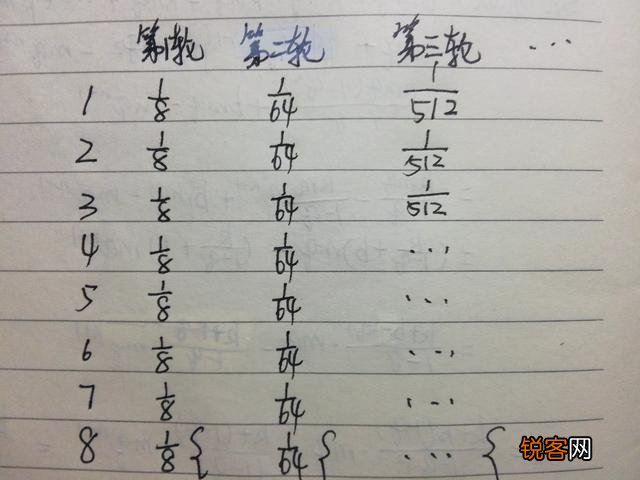 第1轮 第二轮 第三轮 ...
1 1/8 1/64 1/512
2 1/8 1/64 1/512
3 1/8 1/64 1/512
4 1/8 1/64 ...
5 1/8 1/64 ...
6 1/8 1/64 ...
7 1/8 1/64 ...
8 1/8 { 1/64 { ... {
锐客网